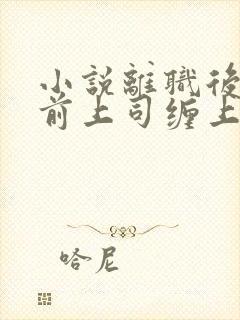 小説離職後
前上司缠上
哈尼